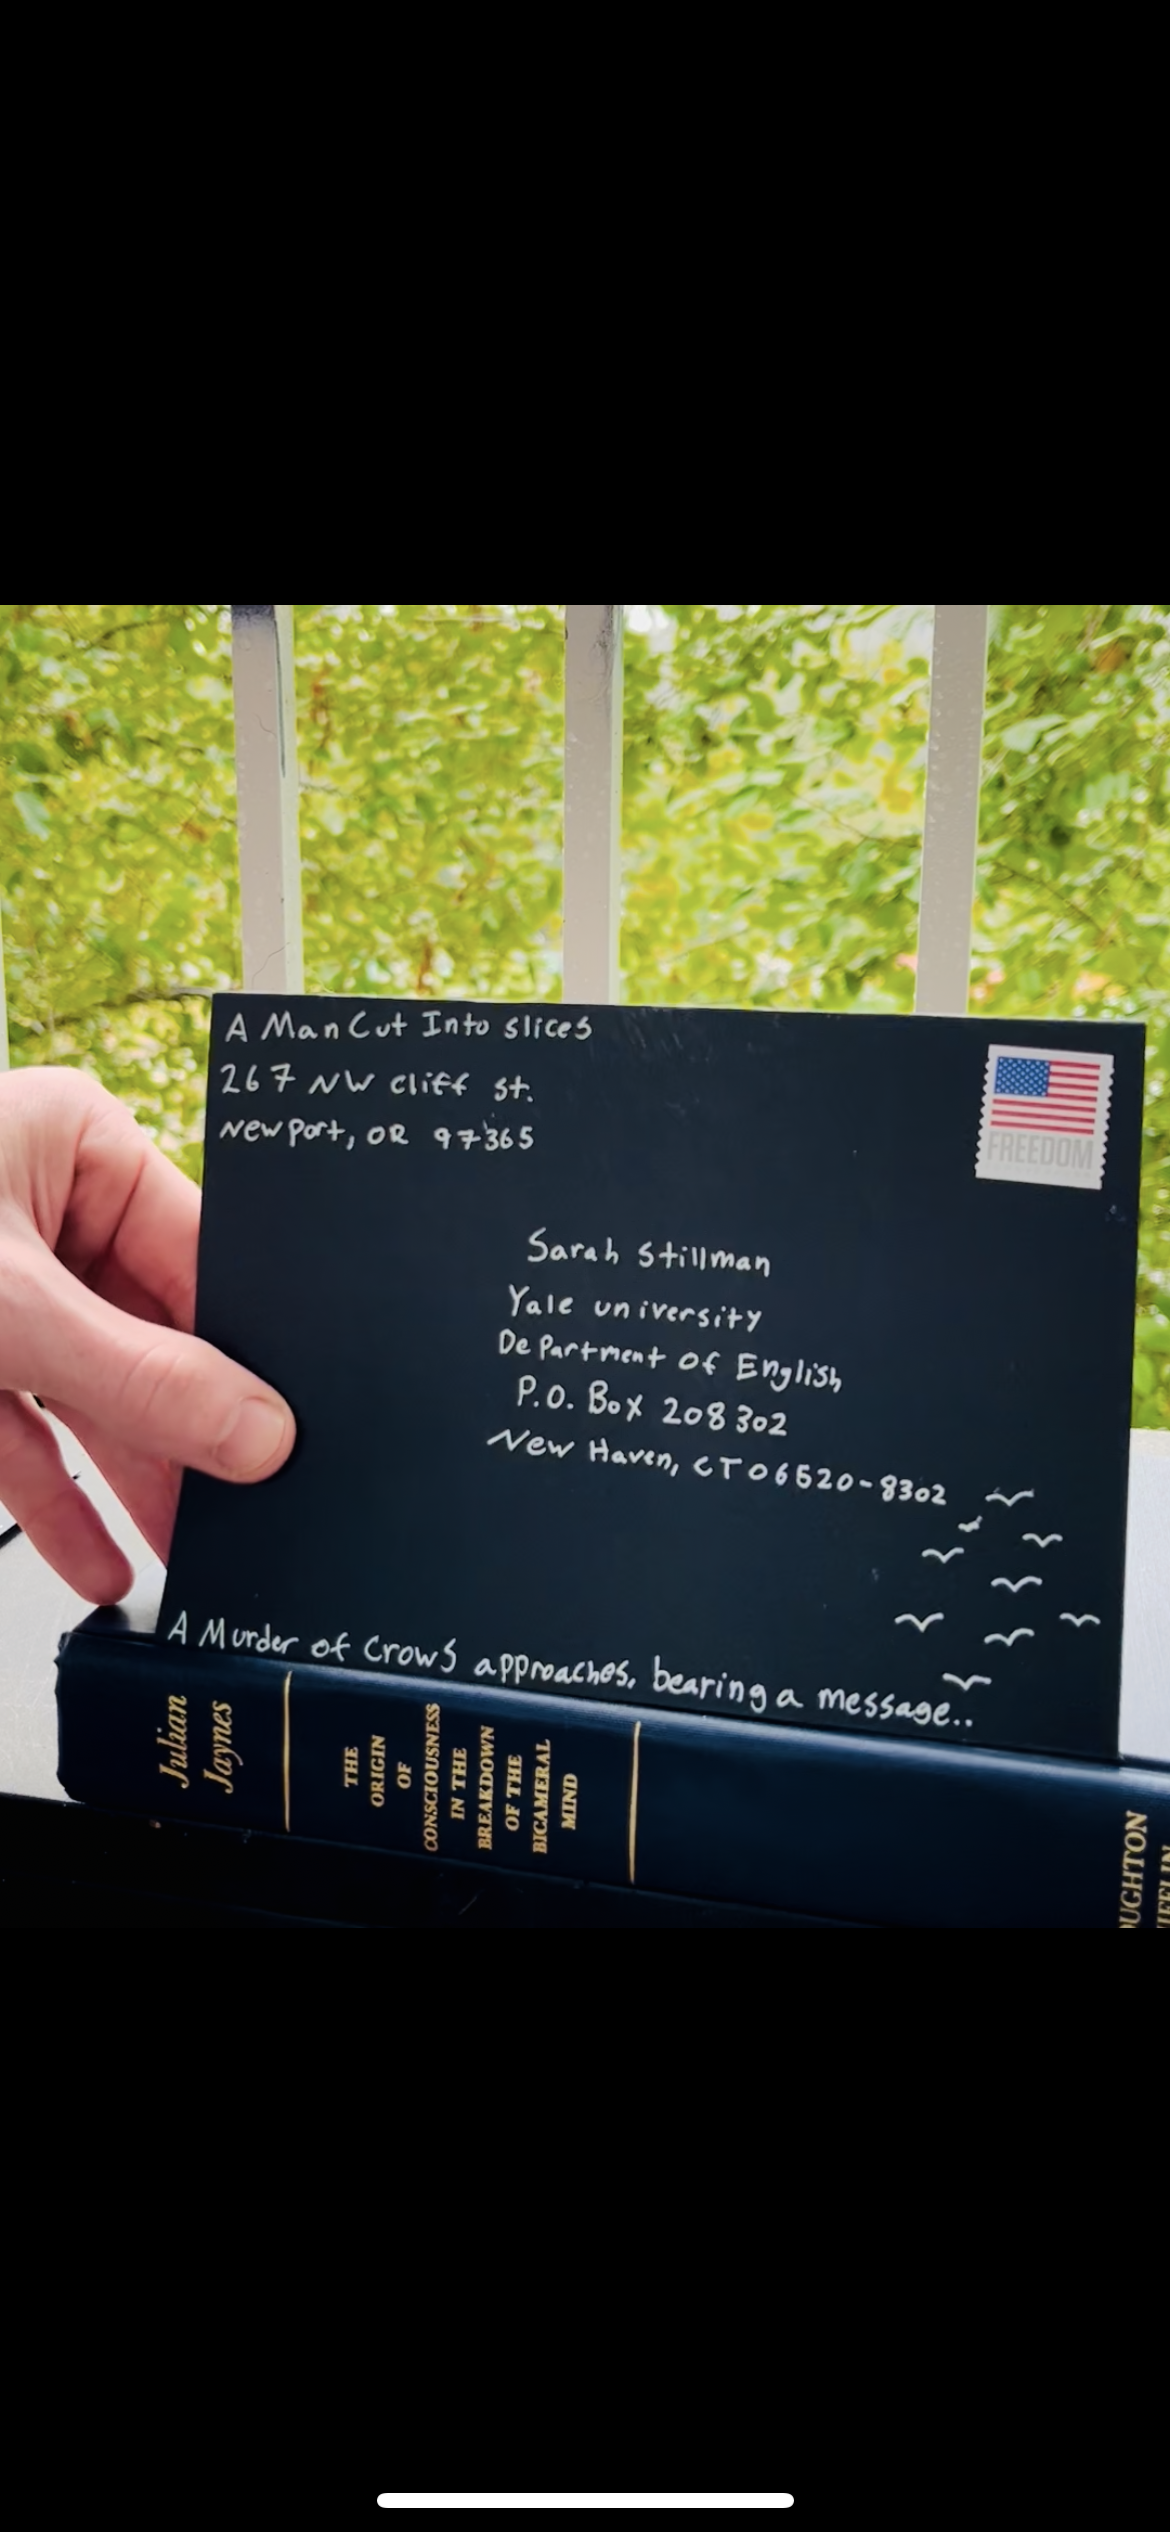 A Man Cut Into slices
267 NW cliff st.
Newport, OR 97365
FREEDOM
Sarah Stillman
Yale university
Department of English
P.O. Box 208302
New Haven, CT 06520-8302
A Murder of Crows approaches, bearing a message..
Julian
Jaynes
THE
ORIGIN
OF
CONSCIOUSNESS
IN THE
BREAKDOWN
OF THE
BICAMERAL
MIND